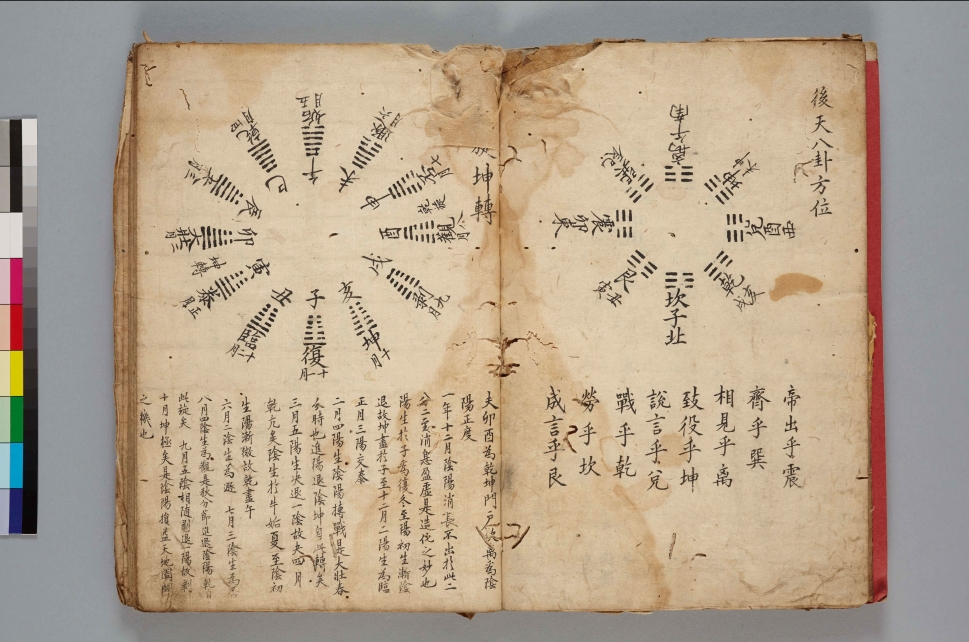 後天八卦方位
离午南
坤
兌酉
乾
坎子北
艮
震卯東
巽
帝出乎震
齊乎巽
相見乎离
致役乎坤
說言乎兌
戰乎乾
勞乎坎
成言乎艮
坤轉
子
復
十一月
丑
臨
十二月
寅
泰
正月
卯
大壯
二月
辰
巳
乾
午
姤
五月
未
遯
申
否
七月
酉
觀
八月
戌
剝
九月
亥
坤
十月
夫卯酉為乾坤門戶坎离為陰
陽正度
一年十二月陰陽消長不出於此二
分二至消息盈虛是造化之妙也
陽生於子為復冬至陽初生漸陰
退故坤盡於子至十二月二陽生為臨
正月三陽交泰
二月四陽生陰陽搏戰是大壯春
分時也進陽退陰坤自此轉矣
三月五陽生決退一陰故夬四月
乾亢矣陰生於午姤夏至陰初
生陽漸微故乾盡午
六月二陰生為遯 七月三陰生為
八月陰生為觀是秋分節進退陰陽乾
此旋矣 九月五陰相隨剝退一陽故剝
十月坤極矣是陰陽復盪天地闔闢
之機也